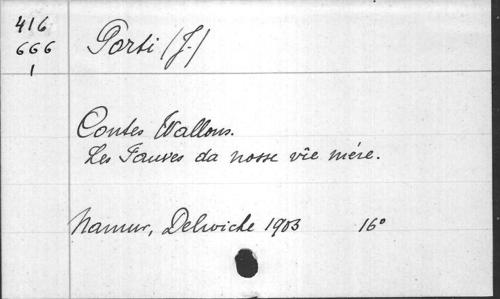 416
666
1
Porti (J.)
Contes Wallons.
Les Fauves da nosse vîe mére.
Namur, Delwiche 1903 16°